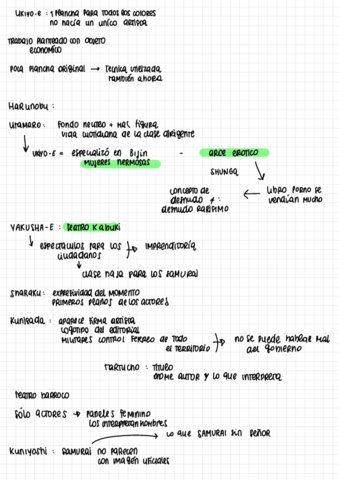 UKIYO-E: 1 PLANCHA PARA TODOS LOS COLORES
NO HACÍA UN ÚNICO ARTISTA
TRABAJO PLANTEADO CON OBJETO
ECONÓMICO
POCA PLANCHA ORIGINAL → TÉCNICA UTILIZADA
TAMBIÉN AHORA
HARUNOBU:
UTAMARO: FONDO NEUTRO + MAS FIGURA
VIDA COTIDIANA DE LA CLASE DIRIGENTE
UKIYO-E = ESPECIALIZÓ EN BIJIN - ARTE ERÓTICO
MUJERES HERMOSAS
SHUNGA
CONCEPTO DE
DESNUDO ≠:
DESNUDO RARÍSIMO
← LIBRO PORNO SE
VENDÍAN MUCHO
YAKUSHA-E: TEATRO KABUKI
ESPECTÁCULOS PARA LOS
CIUDADANOS
IMPRENDITORÍA
CLASE BAJA PARA LOS SAMURAI
SHARAKU: EXPRESIVIDAD DEL MOMENTO
PRIMEROS PLANOS DE LOS ACTORES
KUNISADA: APARECE FIRMA ARTISTA
LOGOTIPO DEL EDITORIAL
MILITARES CONTROL FÉRREO DE TODO
EL TERRITORIO
NO SE PUEDE HABLAR MAL
DEL GOBIERNO
: TÍTULO
NOMBRE AUTOR Y LO QUE INTERPRETA
TEATRO BARROCO
SÓLO ACTORES → PAPELES FEMENINO
LOS INTERPRETAN HOMBRES
→ LO QUE SAMURAI SIN SEÑOR
KUNIYOSHI: SAMURAI NO PARECEN
CON IMAGEN OFICIALES